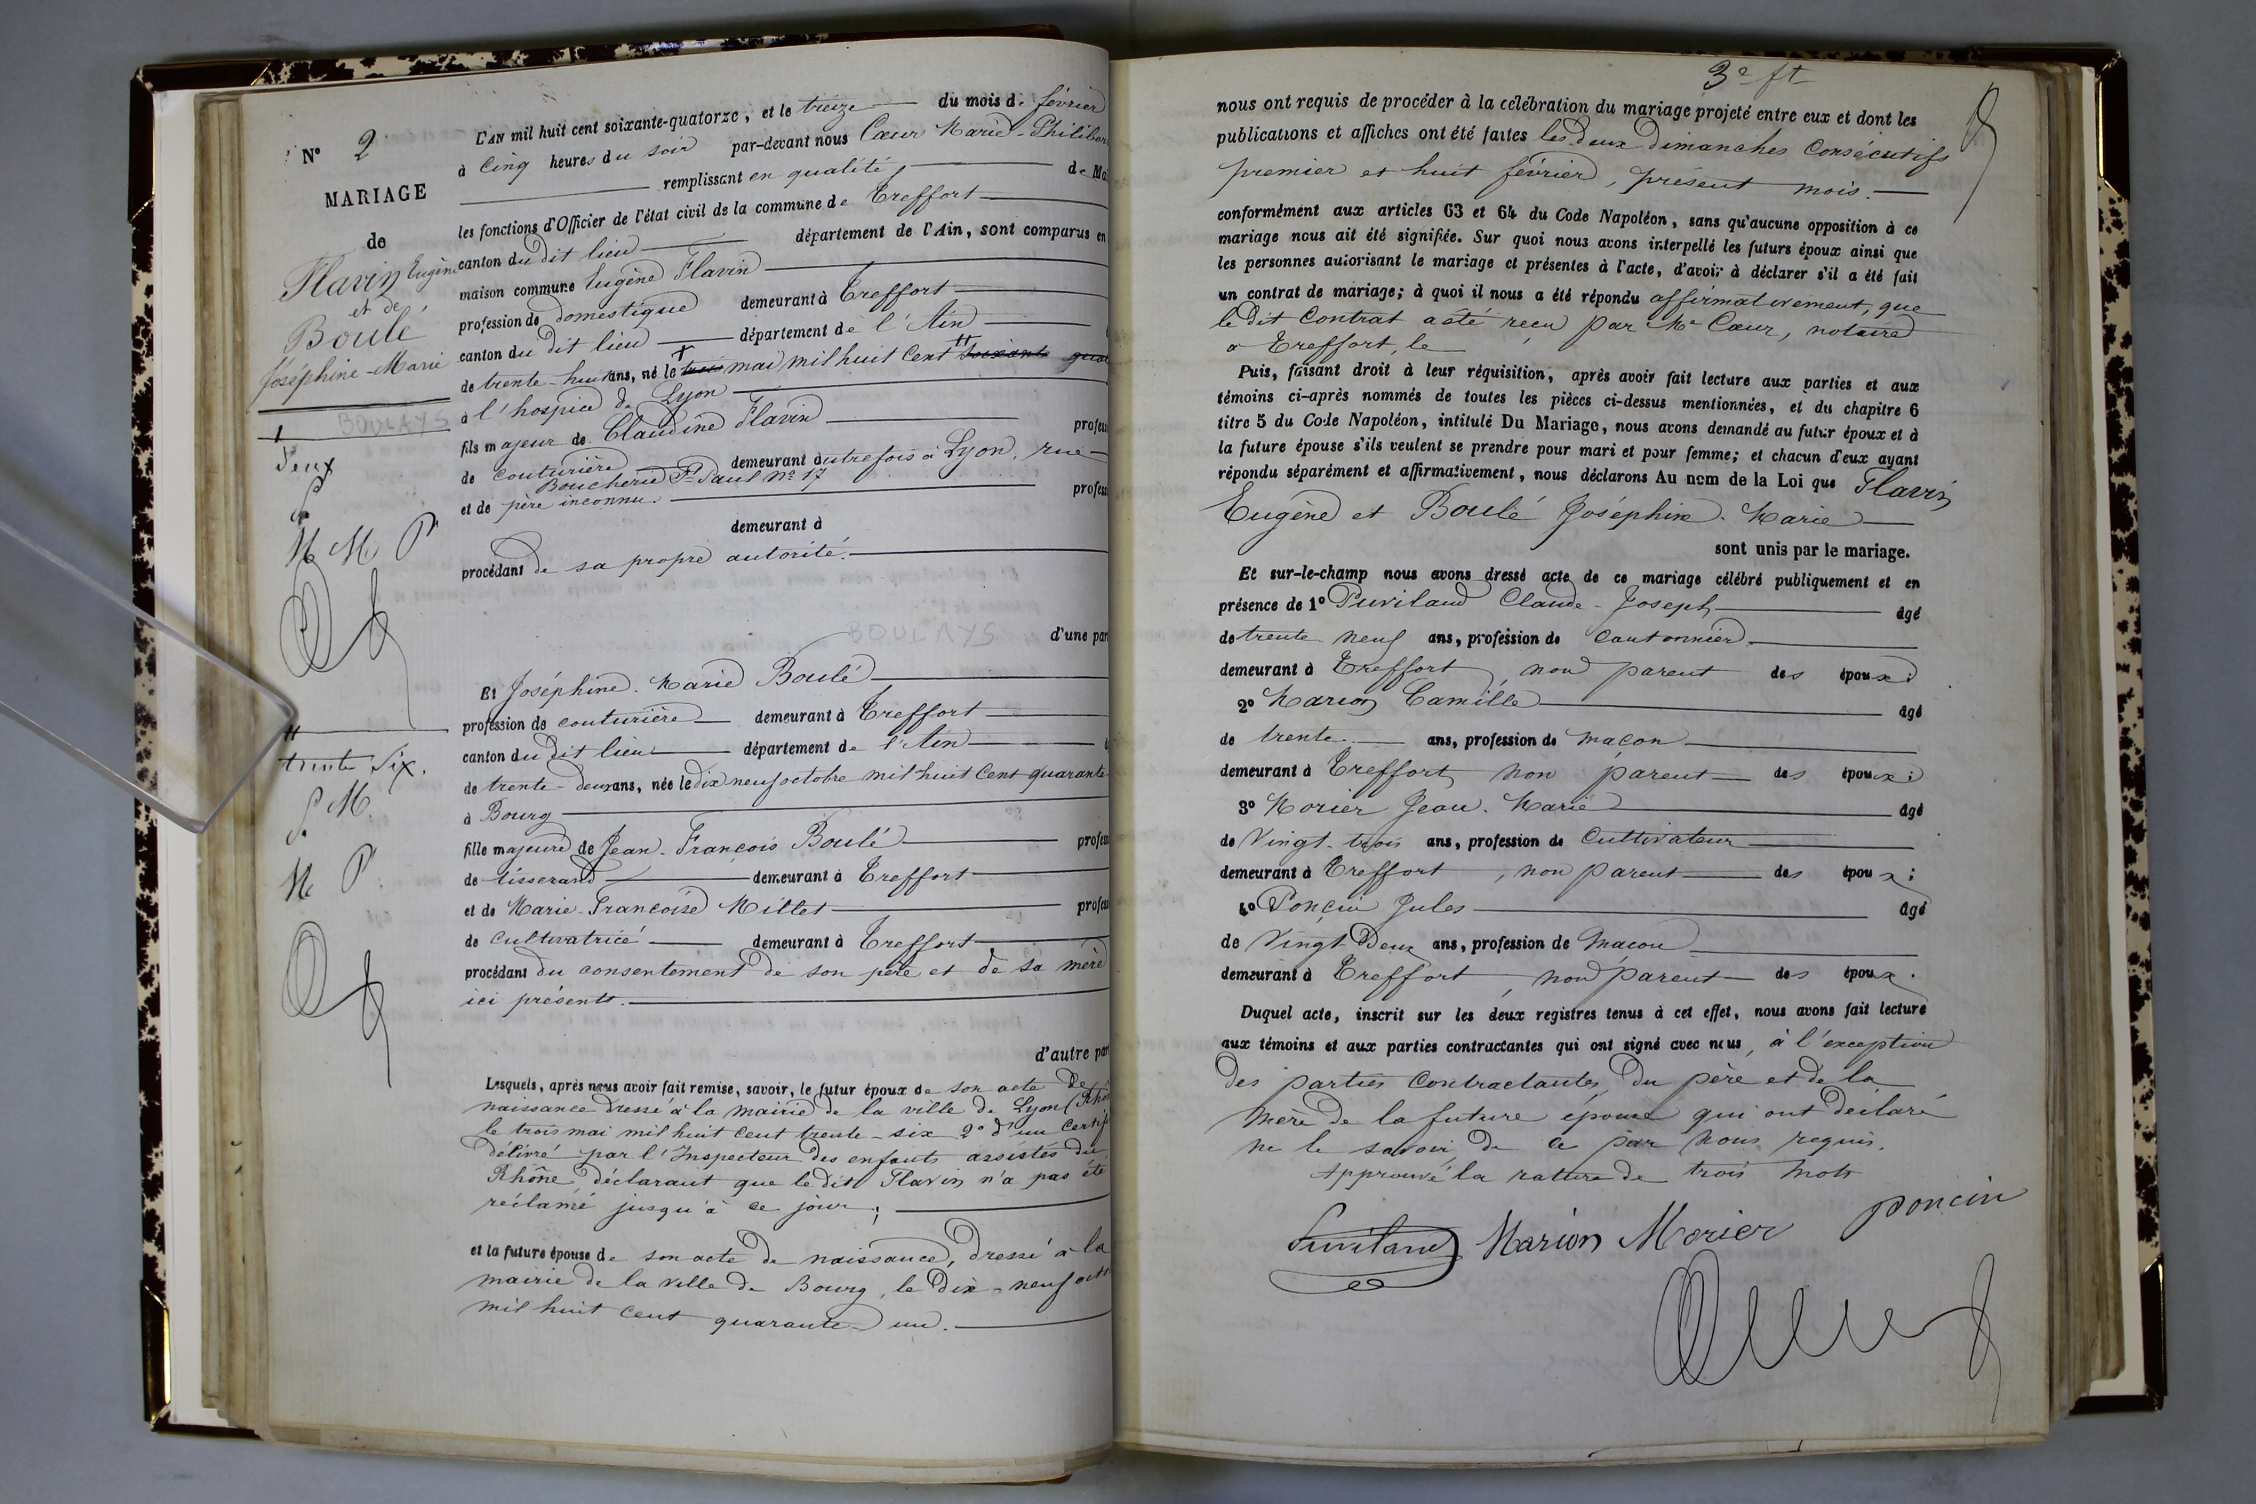 N° 2
MARIAGE
de
Flavin Eugène
et de
Boulé
Joséphine-Marie
BOULAYS
deux
P
M M P
trente six.
P. M.
M P
L'AN mil huit cent soixante-quatorze, et le treize du mois de février
à cinq heures du soir par-devant nous Cœur Marie-Philibert
remplissant en qualité de Ma
les fonctions d'Officier de l'état civil de la commune de Treffort
canton du dit lieu département de l'Ain, sont comparus en
maison commune Eugène Flavin
profession de domestique demeurant à Treffort
canton du dit lieu département de l'Ain
de trente-huit ans, né le trois mai mil huit cent soixante quat
à l'hospice de Lyon
fils majeur de Claudine Flavin profess
de couturière demeurant autrefois à Lyon, rue
Boucherie St Paul N° 17
et de père inconnu. profess
demeurant à
procédant de sa propre autorité.
BOULAYS
d'une par
Et Joséphine-Marie Boulé
profession de couturière demeurant à Treffort
canton du dit lieu département de l'Ain
de trente-deux ans, née le dix neuf octobre mil huit cent quarante
à Bourg
fille majeure de Jean-François Boulé profess
de tisserand demeurant à Treffort
et de Marie-Françoise Millet profess
de cultivatrice demeurant à Treffort
procédant du consentement de son père et de sa mère
ici présents.
d'autre par
Lesquels, après nous avoir fait remise, savoir, le futur époux de son acte de
naissance dressé à la mairie de la ville de Lyon (Rhô
le trois mai mil huit cent trente-six 2° d'un certif
délivré par l'Inspecteur des enfants assistés du
Rhône, déclarant que le dit Flavin n'a pas été
réclamé jusqu'à ce jour;
et la future épouse de son acte de naissance, dressé à la
mairie de la ville de Bourg, le dix-neuf oct
mil huit cent quarante un.
3e ft
nous ont requis de procéder à la célébration du mariage projeté entre eux et dont les
publications et affiches ont été faites les deux Dimanches consécutifs
premier et huit février, présent mois.
conformément aux articles 63 et 64 du Code Napoléon, sans qu'aucune opposition à ce
mariage nous ait été signifiée. Sur quoi nous avons interpellé les futurs époux ainsi que
les personnes autorisant le mariage et présentes à l'acte, d'avoir à déclarer s'il a été fait
un contrat de mariage; à quoi il nous a été répondu affirmativement, que
le dit contrat a été reçu par Me Cœur, notaire
à Treffort, le
Puis, faisant droit à leur réquisition, après avoir fait lecture aux parties et aux
témoins ci-après nommés de toutes les pièces ci-dessus mentionnées, et du chapitre 6
titre 5 du Code Napoléon, intitulé Du Mariage, nous avons demandé au futur époux et à
la future épouse s'ils veulent se prendre pour mari et pour femme; et chacun d'eux ayant
répondu séparément et affirmativement, nous déclarons Au nom de la Loi que Flavin
Eugène et Boulé Joséphine-Marie
sont unis par le mariage.
Et sur-le-champ nous avons dressé acte de ce mariage célébré publiquement et en
présence de 1° Puvilland Claude-Joseph âgé
de trente neuf ans, profession de cantonnier
demeurant à Treffort, non parent des époux:
2° Marion Camille âgé
de trente ans, profession de maçon
demeurant à Treffort non parent des époux;
3° Morier Jean-Marie âgé
de Vingt-trois ans, profession de cultivateur
demeurant à Treffort, non parent des époux;
4° Ponçin Jules âgé
de Vingt Deux ans, profession de maçon
demeurant à Treffort, non parent des époux.
Duquel acte, inscrit sur les deux registres tenus à cet effet, nous avons fait lecture
aux témoins et aux parties contractantes qui ont signé avec nous, à l'exception
des parties contractantes, du père et de la
mère de la future épouse qui ont déclaré
ne le savoir, de ce par nous requis.
Approuvé la rature de trois mots
Puvilland Marion Morier poncin